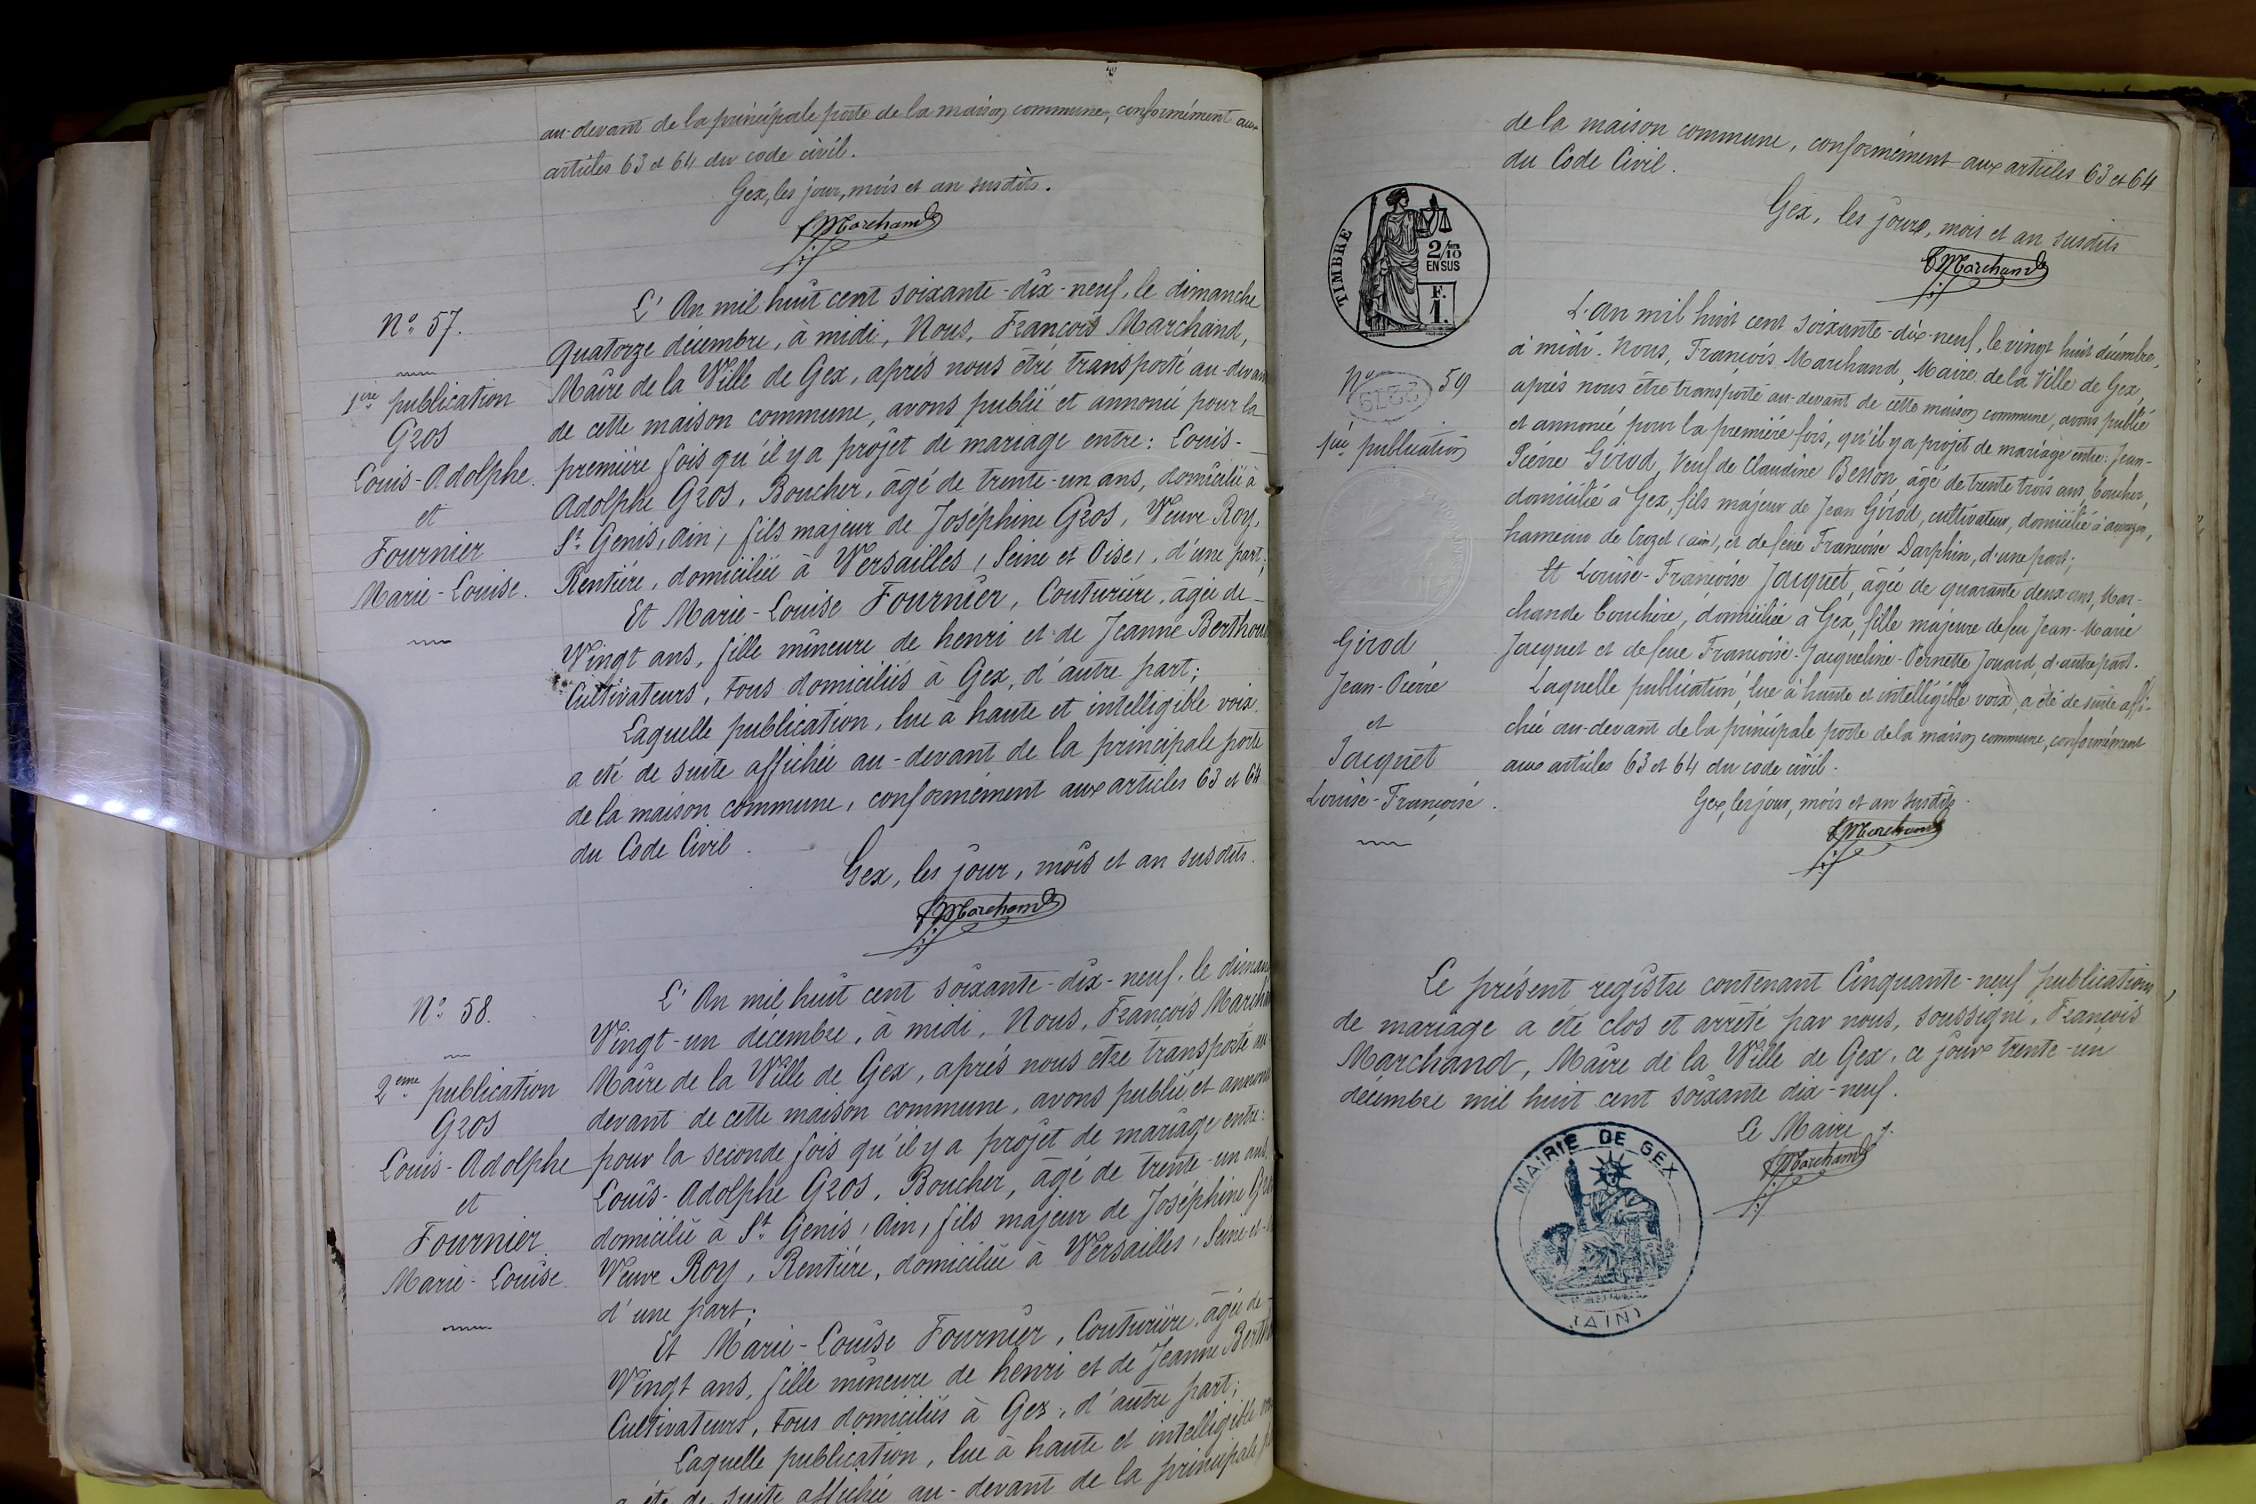 au-devant de la principale porte de la maison commune, conformément aux
articles 63 et 64 du code civil.
Gex, les jour, mois et an susdits.
Marchand
N.° 57.
1ère publication
Gros
Louis-Adolphe.
et
Fournier
Marie-Louise.
L'An mil huit cent soixante-dix-neuf, le dimanche
quatorze décembre, à midi, Nous, François Marchand,
Maire de la Ville de Gex, après nous être transporté au-devant
de cette maison commune, avons publié et annoncé pour la
première fois qu'il y a projet de mariage entre: Louis-
Adolphe Gros, Boucher, âgé de trente-un ans, domicilié à
St Genis, Ain, fils majeur de Joséphine Gros, Veuve Roy,
Rentière, domiciliée à Versailles, Seine et Oise, d'une part;
Et Marie-Louise Fournier, Couturière, âgée de
Vingt ans, fille mineure de henri et de Jeanne Berthou
Cultivateurs, tous domiciliés à Gex, d'autre part;
Laquelle publication, lue à haute et intelligible voix,
a été de suite affichée au-devant de la principale porte
de la maison commune, conformément aux articles 63 et 64
du Code Civil.
Gex, les jour, mois et an susdits.
Marchand
N.° 58.
2ème publication
Gros
Louis-Adolphe
et
Fournier
Marie-Louise.
L'An mil huit cent soixante-dix-neuf, le diman
Vingt-un décembre, à midi, Nous, François Marcha
Maire de la Ville de Gex, après nous être transporté au
devant de cette maison commune, avons publié et annoncé
pour la seconde fois qu'il y a projet de mariage entre:
Louis-Adolphe Gros, Boucher, âgé de trente-un ans,
domicilié à St Genis, Ain, fils majeur de Joséphine Gro
Veuve Roy, Rentière, domiciliée à Versailles, Seine-et-
d'une part;
Et Marie-Louise Fournier, Couturière, âgée de
Vingt ans, fille mineure de henri et de Jeanne Berth
Cultivateurs, tous domiciliés à Gex, d'autre part;
Laquelle publication, lue à haute et intelligible
a été de suite affichée au-devant de la principale
de la maison commune, conformément aux articles 63 et 64
du Code Civil.
Gex, les jour, mois et an susdits
Marchand
TIMBRE
2/10
EN SUS
F.
1.
N° 59
1ère publication
Girod
Jean-Pierre
et
Jacquet
Louise-Françoise.
L'an mil huit cent soixante-dix-neuf, le vingt huit décembre,
à midi. Nous, François Marchand, Maire de la Ville de Gex,
après nous être transporté au-devant de cette maison commune, avons publié
et annoncé pour la première fois, qu'il y a projet de mariage entre: Jean-
Pierre Girod, Veuf de Claudine Benon, âgé de trente trois ans, boucher,
domicilié à Gex, fils majeur de Jean Girod, cultivateur, domicilié à
hameau de Crozet (ain), et de feue Françoise Darphin, d'une part;
Et Louise-Françoise Jacquet, âgée de quarante deux ans, Mar-
chande bouchère, domiciliée à Gex, fille majeure de feu Jean-Marie
Jacquet et de feue Françoise-Jacqueline-Pernette Jouard, d'autre part.
Laquelle publication, lue à haute et intelligible voix, a été de suite affi-
chée au-devant de la principale porte de la maison commune, conformément
aux articles 63 et 64 du code civil.
Gex, les jour, mois et an susdits.
Marchand
Le présent registre contenant Cinquante-neuf publications
de mariage a été clos et arrêté par nous, soussigné, François
Marchand, Maire de la Ville de Gex, ce jour trente-un
décembre mil huit cent soixante dix-neuf.
Le Maire,
Marchand
MAIRIE DE GEX
(AIN)